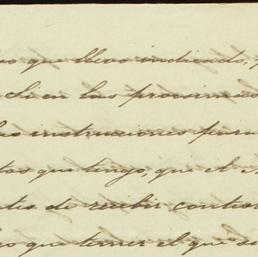 que llevo indicado,
en las provincias
instrucciones para
que tengo, que el
de recibir contes
que temer el que se